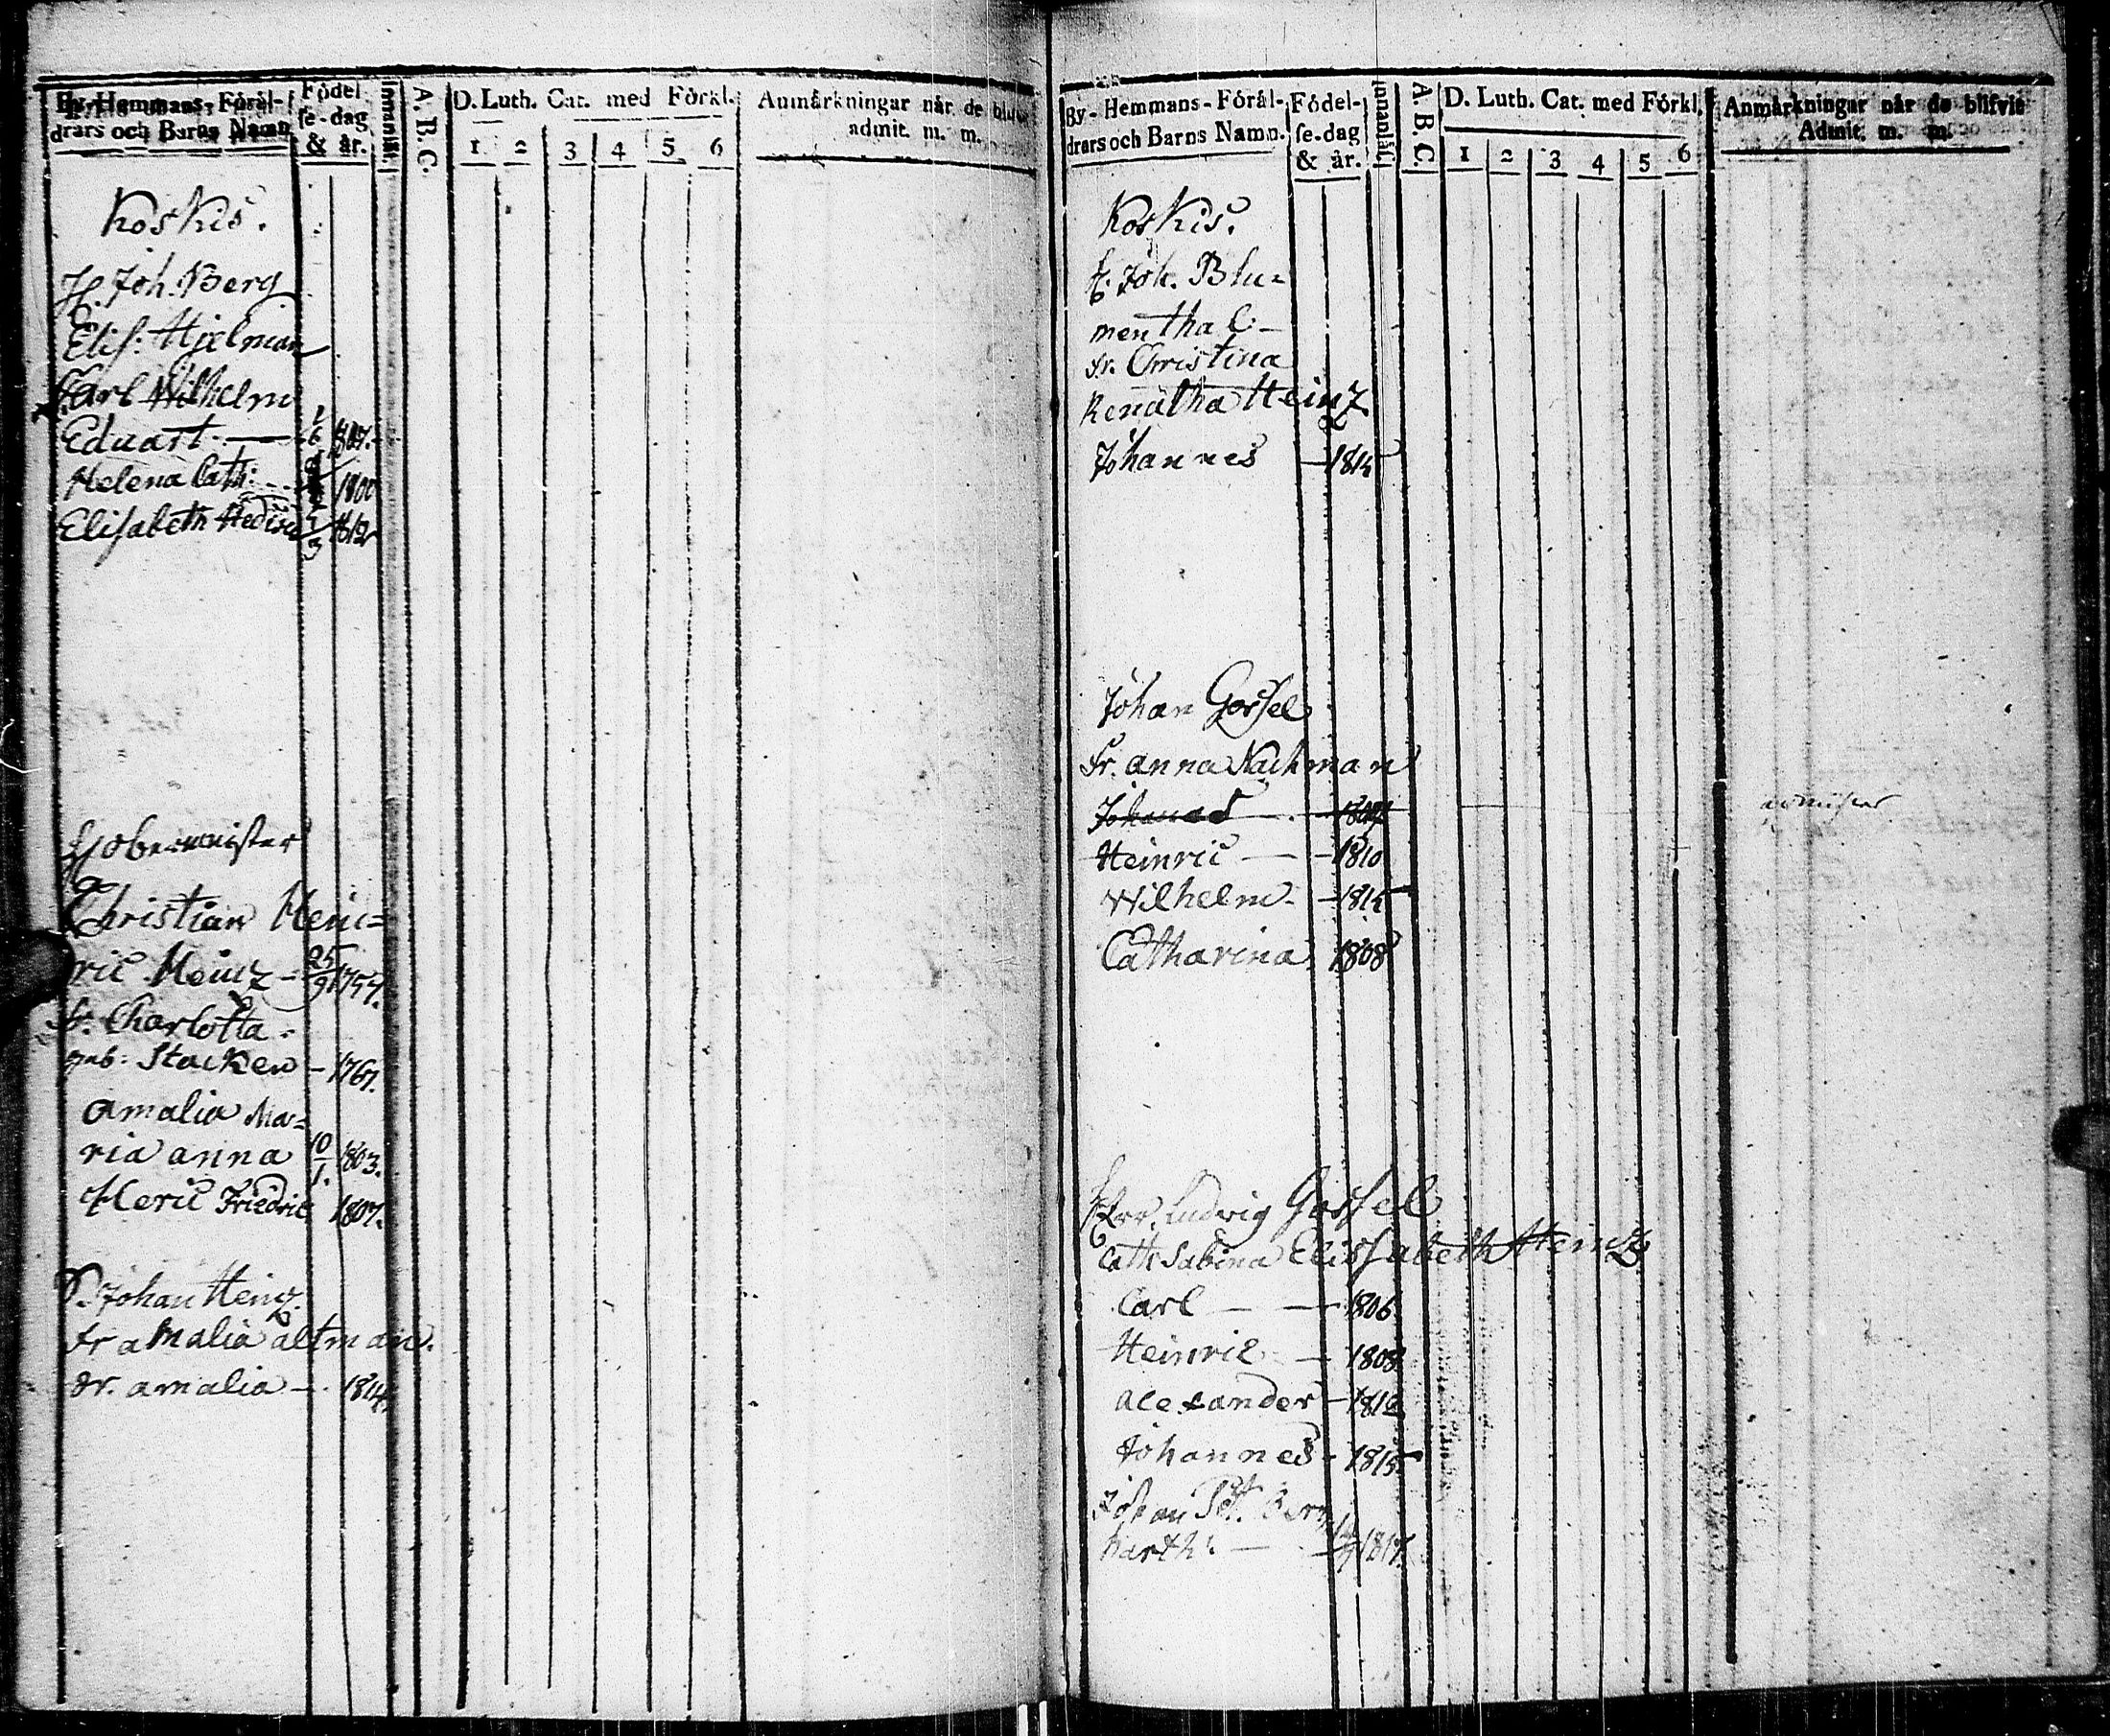 By-Hemmans-Föräl-
drars och Barns Namn
Födel-
se-dag
& år.
Innanläs.
A. B. C.
D. Luth. Cat. med Förkl.
1 2 3 4 5 6
Anmärkningar når de blifvit
admit. m. m.
Koskis.
H. Joh. Berg
Elis: Hjelman
Carl Wilhelm
Eduart 1807.
Helena Cath: 1800
Elisabeth 1812
H obermeister
Christian Hein=
ric Heinz 25/9 1757.
fr. Charlotta
geb: Stacken 1767.
Amalia Ma=
ria anna 10/1. 1803.
Heric Friedric 1807.
Johan Heinz
fr amalia altman.
dr. amalia 1814.
By-Hemmans-Föräl-
drars och Barns Namn.
Födel-
se-dag
& år.
Innanläs.
A. B. C.
D. Luth. Cat. med Förkl.
1 2 3 4 5 6
Anmärkningar når de blifvit
Admit. m. m.
Koskis.
H. Joh. Blu=
menthal
fr. Christina
Renatha Heinz
Johannes
Johan Gossel
Fr. anna Nachman
Heinric 1810
Wilhelm 1815
Catharina 1808
Herr. Ludvig Gossel
Cath Sabina Elissabeth Heinz
Carl 1806
Heinric 1808
Alexander 1812
Johannes 1815
Johan Pet. Bern
harth: 1817.